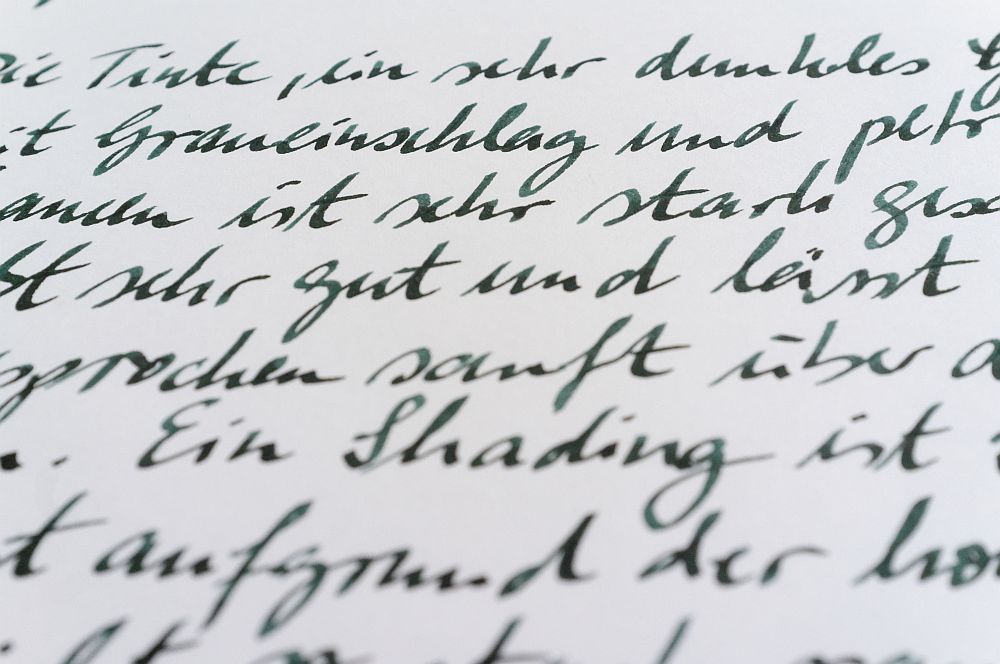 Die Tinte, ein sehr dunkles
mit Graueinschlag und petr
ancen ist sehr stark gesä
bt sehr gut und lässt
sprochen sanft über d
n. Ein Shading ist
t aufgrund der ho